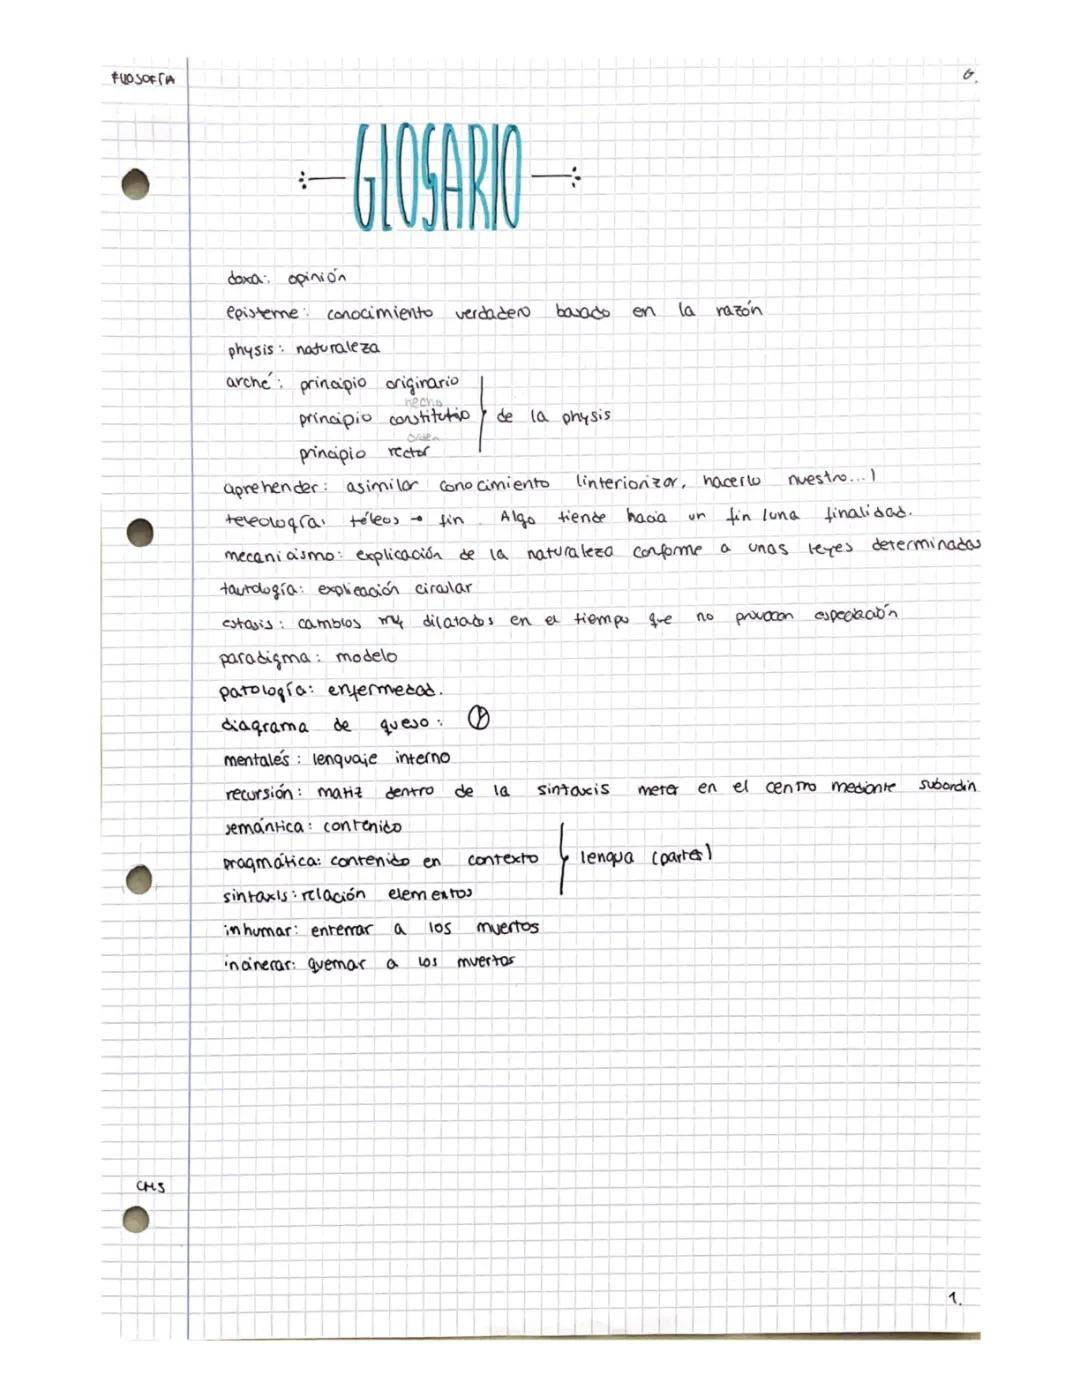 FILOSOFÍA
G.
GLOSARIO
doxa: opinión
episteme: conocimiento verdadero basado en la razón
physis: naturaleza
arché: principio originario
hecho
principio constitutio de la physis
orden
principio rector
aprehender: asimilar conocimiento (interiorizar, hacerlo nuestro...)
teleología: téleos → fin. Algo tiende hacia un fin/una finalidad.
mecanicismo: explicación de la naturaleza conforme a unas leyes determinadas
tautología: explicación circular
estasis: cambios muy dilatados en el tiempo que no provocan especiación
paradigma: modelo
patología: enfermedad.
diagrama de queso:
mentalés: lenguaje interno
recursión: matiz dentro de la sintaxis meter en el centro mediante subordin
semántica: contenido
pragmática: contenido en contexto lengua (partes)
sintaxis: relación elementos
inhumar: enterrar a los muertos
incinerar: quemar a los muertos
CMS
1.